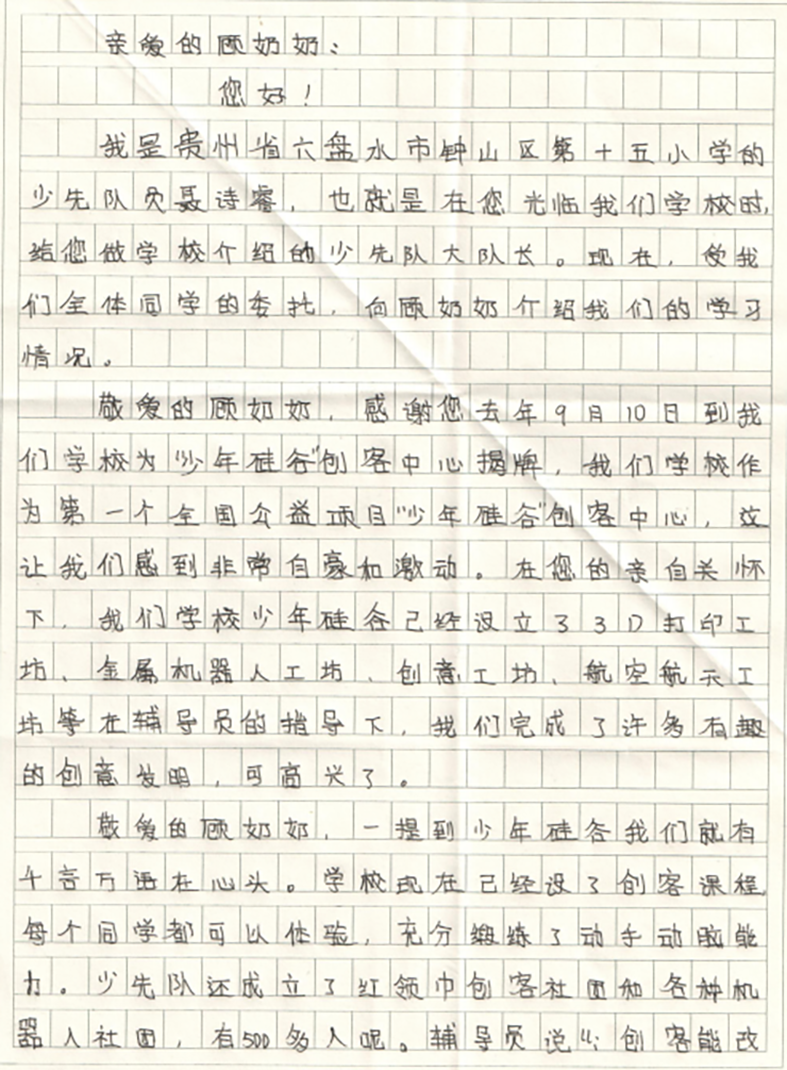 亲爱的顾奶奶：
您好！
我是贵州省六盘水市钟山区第十五小学的
少先队员聂诗睿，也就是在您光临我们学校时,
给您做学校介绍的少先队大队长。现在，受我
们全体同学的委托，向顾奶奶介绍我们的学习
情况。
敬爱的顾奶奶，感谢您去年9月10日到我
们学校为“少年硅谷”创客中心揭牌，我们学校作
为第一个全国公益项目“少年硅谷”创客中心，这
让我们感到非常自豪和激动。在您的亲自关怀
下，我们学校少年硅谷已经设立了3D打印工
坊、金属机器人工坊、创意工坊、航空航天工
坊等在辅导员的指导下，我们完成了许多有趣
的创意发明，可高兴了。
敬爱的顾奶奶，一提到少年硅谷我们就有
千言万语在心头。学校现在已经设了创客课程,
每个同学都可以体验，充分锻练了动手动脑能
力。少先队还成立了红领巾创客社团和各种机
器人社团，有500多人呢。辅导员说“：创客能改